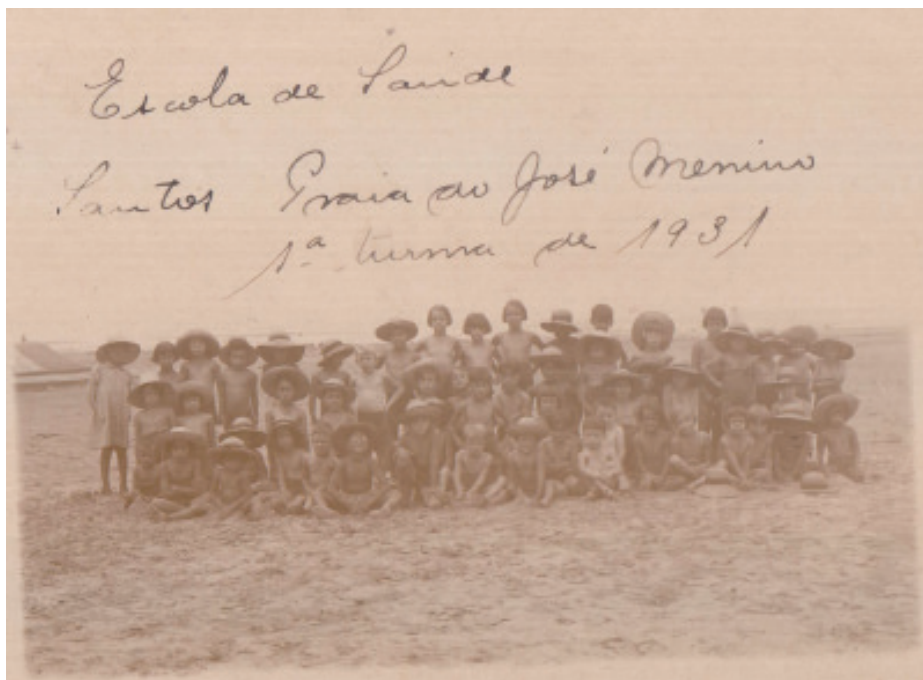 Escola de Saude
Santos Praia do José Menino
1ª turma de 1931